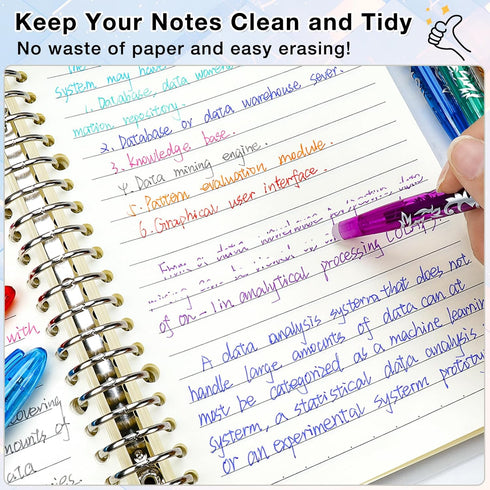 Keep Your Notes Clean and Tidy
No waste of paper and easy erasing!
system may have
1. Database, data wareho
mation repository.
2. Database or data warehouse sever.
3. Knowledge base.
4. Data mining engine.
5. Pattern evaluation module.
6. Graphical user interface.
From a data warehouse perspective data
mining
of on-lin analytical processing (OLAP).
A data analysis systerm that does not
handle large amounts of data can at
most be categorized as a machine learnin
systerm, a statistical data analysis
or an experimental systerm prototy
with
covering
mounts of
ata